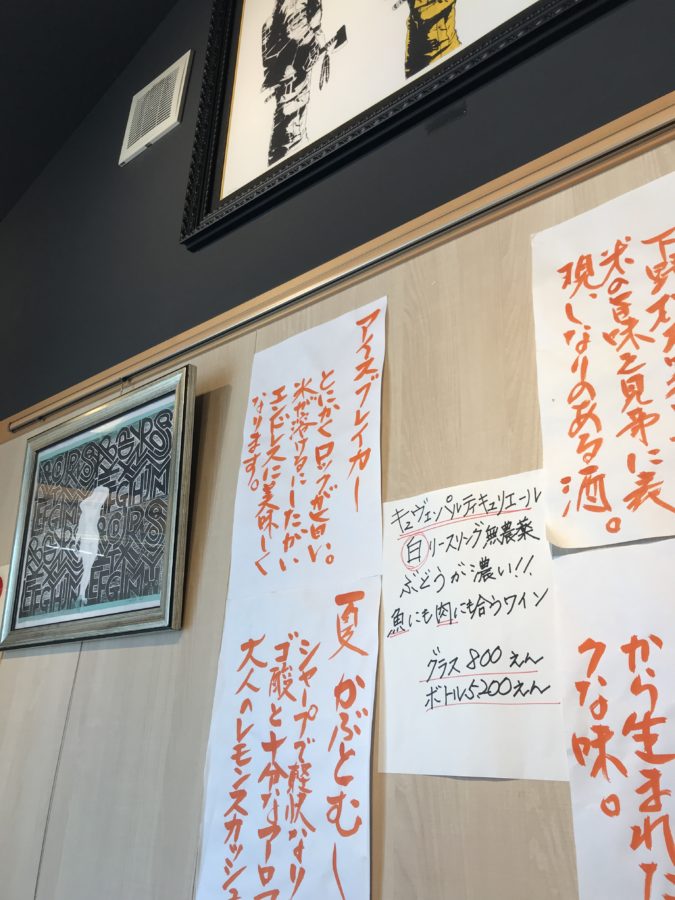 アイスブレイカー
とにかくロックが旨い。
氷が溶けるにしたがい
エンドレスに美味しく
なります。
夏かぶとむし
シャープで軽快なリ
ゴ酸と十分なアロマ
大人のレモンスカッシュ
キュヴェ・パルティキュリエール
白 リースリング無農薬
ぶどうが濃い!!
魚にも肉にも合うワイン
グラス800えん
ボトル5,200えん
米の旨味を見事に表
現、しなりのある酒。
から生まれた
クな味。